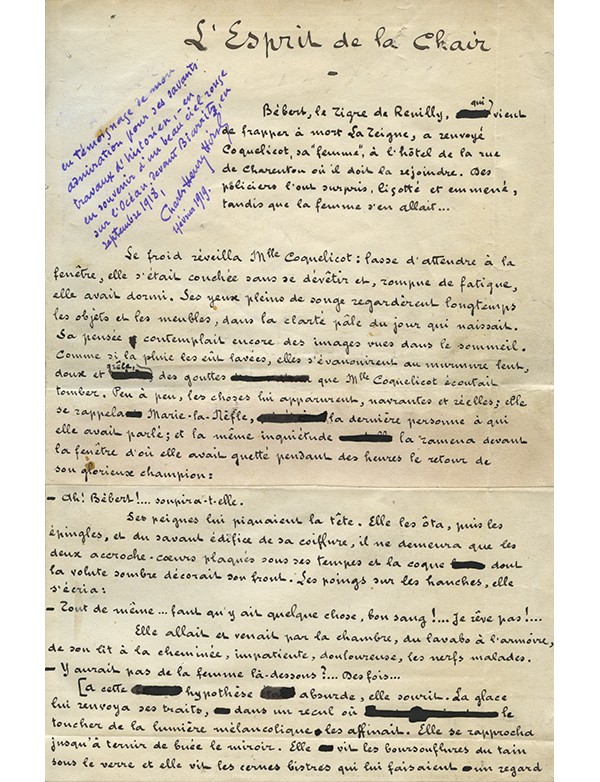 L'Esprit de la Chair
en témoignage de mon
admiration pour ses savants
travaux d'historien, - en
en souvenir d'un beau ciel rouge
sur l'Océan, devant Biarritz, en
septembre 1913,
Charles-Henry Hirsch
février 1919.
Bébert, le Tigre de Reuilly, qui vient
de frapper à mort La Teigne, a renvoyé
Coquelicot, sa "femme", à l'hôtel de la rue
de Charenton où il doit la rejoindre. Des
policiers l'ont surpris, ligotté et emmené,
tandis que la femme s'en allait...
Le froid réveilla Mlle Coquelicot : lasse d'attendre à la
fenêtre, elle s'était couchée sans se dévêtir et, rompue de fatigue,
elle avait dormi. Ses yeux pleins de songe regardèrent longtemps
les objets et les meubles, dans la clarté pâle du jour qui naissait.
Sa pensée contemplait encore des images vues dans le sommeil.
Comme si la pluie les eût lavées, elles s'évanouirent au murmure lent,
doux et grêle, des gouttes que Mlle Coquelicot écoutait
tomber. Peu à peu, les choses lui apparurent, navrantes et réelles ; elle
se rappela Marie-la-Nèfle, la dernière personne à qui
elle avait parlé ; et la même inquiétude la ramena devant
la fenêtre d'où elle avait guetté pendant des heures le retour de
son glorieux champion :
- Ah ! Bébert !... soupira-t-elle.
Ses peignes lui piquaient la tête. Elle les ôta, puis les
épingles, et du savant édifice de sa coiffure, il ne demeura que les
deux accroche-cœurs plaqués sous ses tempes et la coque dont
la volute sombre décorait son front. Les poings sur les hanches, elle
s'écria :
- Tout de même... faut qu'y ait quelque chose, bon sang !... Je rêve pas !...
Elle allait et venait par la chambre, du lavabo à l'armoire,
de son lit à la cheminée, impatiente, douloureuse, les nerfs malades.
- Y aurait pas de la femme là-dessous ?... Des fois...
[a cette hypothèse absurde, elle sourit. La glace
lui renvoya ses traits, dans un recul où le
toucher de la lumière mélancolique les affinait. Elle se rapprocha
jusqu'à ternir de buée le miroir. Elle vit les boursouflures du tain
sous le verre et elle vit les cernes bistres qui lui faisaient un regard